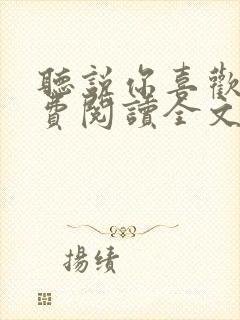 聽說你喜歡
費閱讀全文
揚績